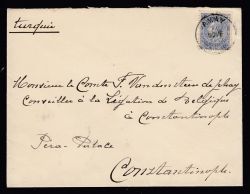 turquie
Monsieur le Comte F. Van den Steen de Jehay
Conseiller à la Légation de Belgique
à Constantinople
Pera-Palace
Constantinople.